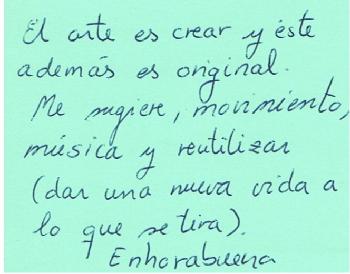 El arte es crear y éste
además es original.
Me sugiere, movimiento,
música y reutilizar
(dar una nueva vida a
lo que se tira).
Enhorabuena